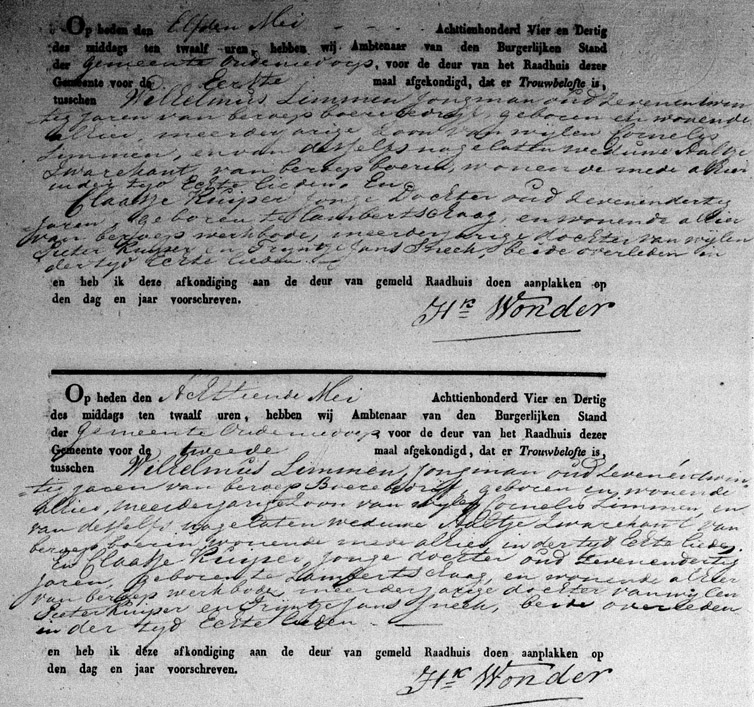 Op heden den Elfden Mei - - - Achttienhonderd Vier en Dertig
des middags ten twaalf uren, hebben wij Ambtenaar van den Burgerlijken Stand
der Gemeente Oudenierop, voor de deur van het Raadhuis dezer
Gemeente voor de Eerste maal afgekondigd, dat er Trouwbelofte is,
tusschen Willelmus Limmen, Jongman oud Zevenentwin
tig jaren van beroep boerebedrijf, geboren en wonende
alhier, meerderjarige Zoon van wijlen Cornelis
Limmen, en van desselfs nagelaten weduwe Aaltje
Zwarehant, van beroep boerin, wonende mede alhier
in der tyd Echte lieden. En
Claasje Kuijper jonge Dochter oud Zevenendertig
jaren, Geboren te Lambertschaag, en wonende alhier
van beroep werkbode, meerderjarige dochter van wijlen
Pieter Kuijper en Trijntje Jans Snech, beide overleden in
der tyd Echte lieden. -
en heb ik deze afkondiging aan de deur van gemeld Raadhuis doen aanplakken op
den dag en jaar voorschreven.
Hk Wonder
Op heden den Achttiende Mei Achttienhonderd Vier en Dertig
des middags ten twaalf uren, hebben wij Ambtenaar van den Burgerlijken Stand
der Gemeente Oudenierop voor de deur van het Raadhuis dezer
Gemeente voor de tweede maal afgekondigd, dat er Trouwbelofte is,
tusschen Willelmus Limmen, Jongman oud Zevenentwin
tig jaren van beroep Boerebedrijf, geboren en wonende
alhier, meerderjarige Zoon van wijlen Cornelis Limmen, en
van desselfs nagelaten weduwe Aaltje Zwarehant van
beroep boerin, wonende mede alhier, in der tyd Echte lieden.
En Claasje Kuijper jonge dochter oud Zevenendertig
jaren, geboren te Lambertschaag, en wonende alhier
van beroep werkbode, meerderjarige dochter van wijlen
Pieter Kuijper en Trijntje Jans Snech, beide overleden
in der tyd Echte lieden. -
en heb ik deze afkondiging aan de deur van gemeld Raadhuis doen aanplakken op
den dag en jaar voorschreven.
Hk Wonder